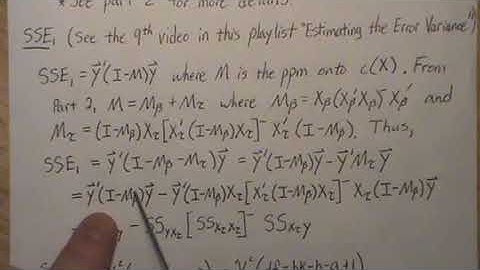 * See part 2 for more details.
SSE₁ (See the 9th video in this playlist "Estimating the Error Variance")
SSE₁ = y⃗'(I-M)y⃗ where M is the ppm onto c(X). From
Part 2, M = Mβ + Mτ where Mβ = Xβ(Xβ'Xβ)⁻Xβ' and
Mτ = (I-Mβ)Xτ[Xτ'(I-Mβ)Xτ]⁻ Xτ'(I-Mβ). Thus,
SSE₁ = y⃗'(I-Mβ-Mτ)y⃗ = y⃗'(I-Mβ)y⃗ - y⃗'Mτy⃗
= y⃗'(I-Mβ)y⃗ - y⃗'(I-Mβ)Xτ[Xτ'(I-Mβ)Xτ]⁻ Xτ(I-Mβ)y⃗
- SSyxτ[SSxτxτ]⁻ SSxτy